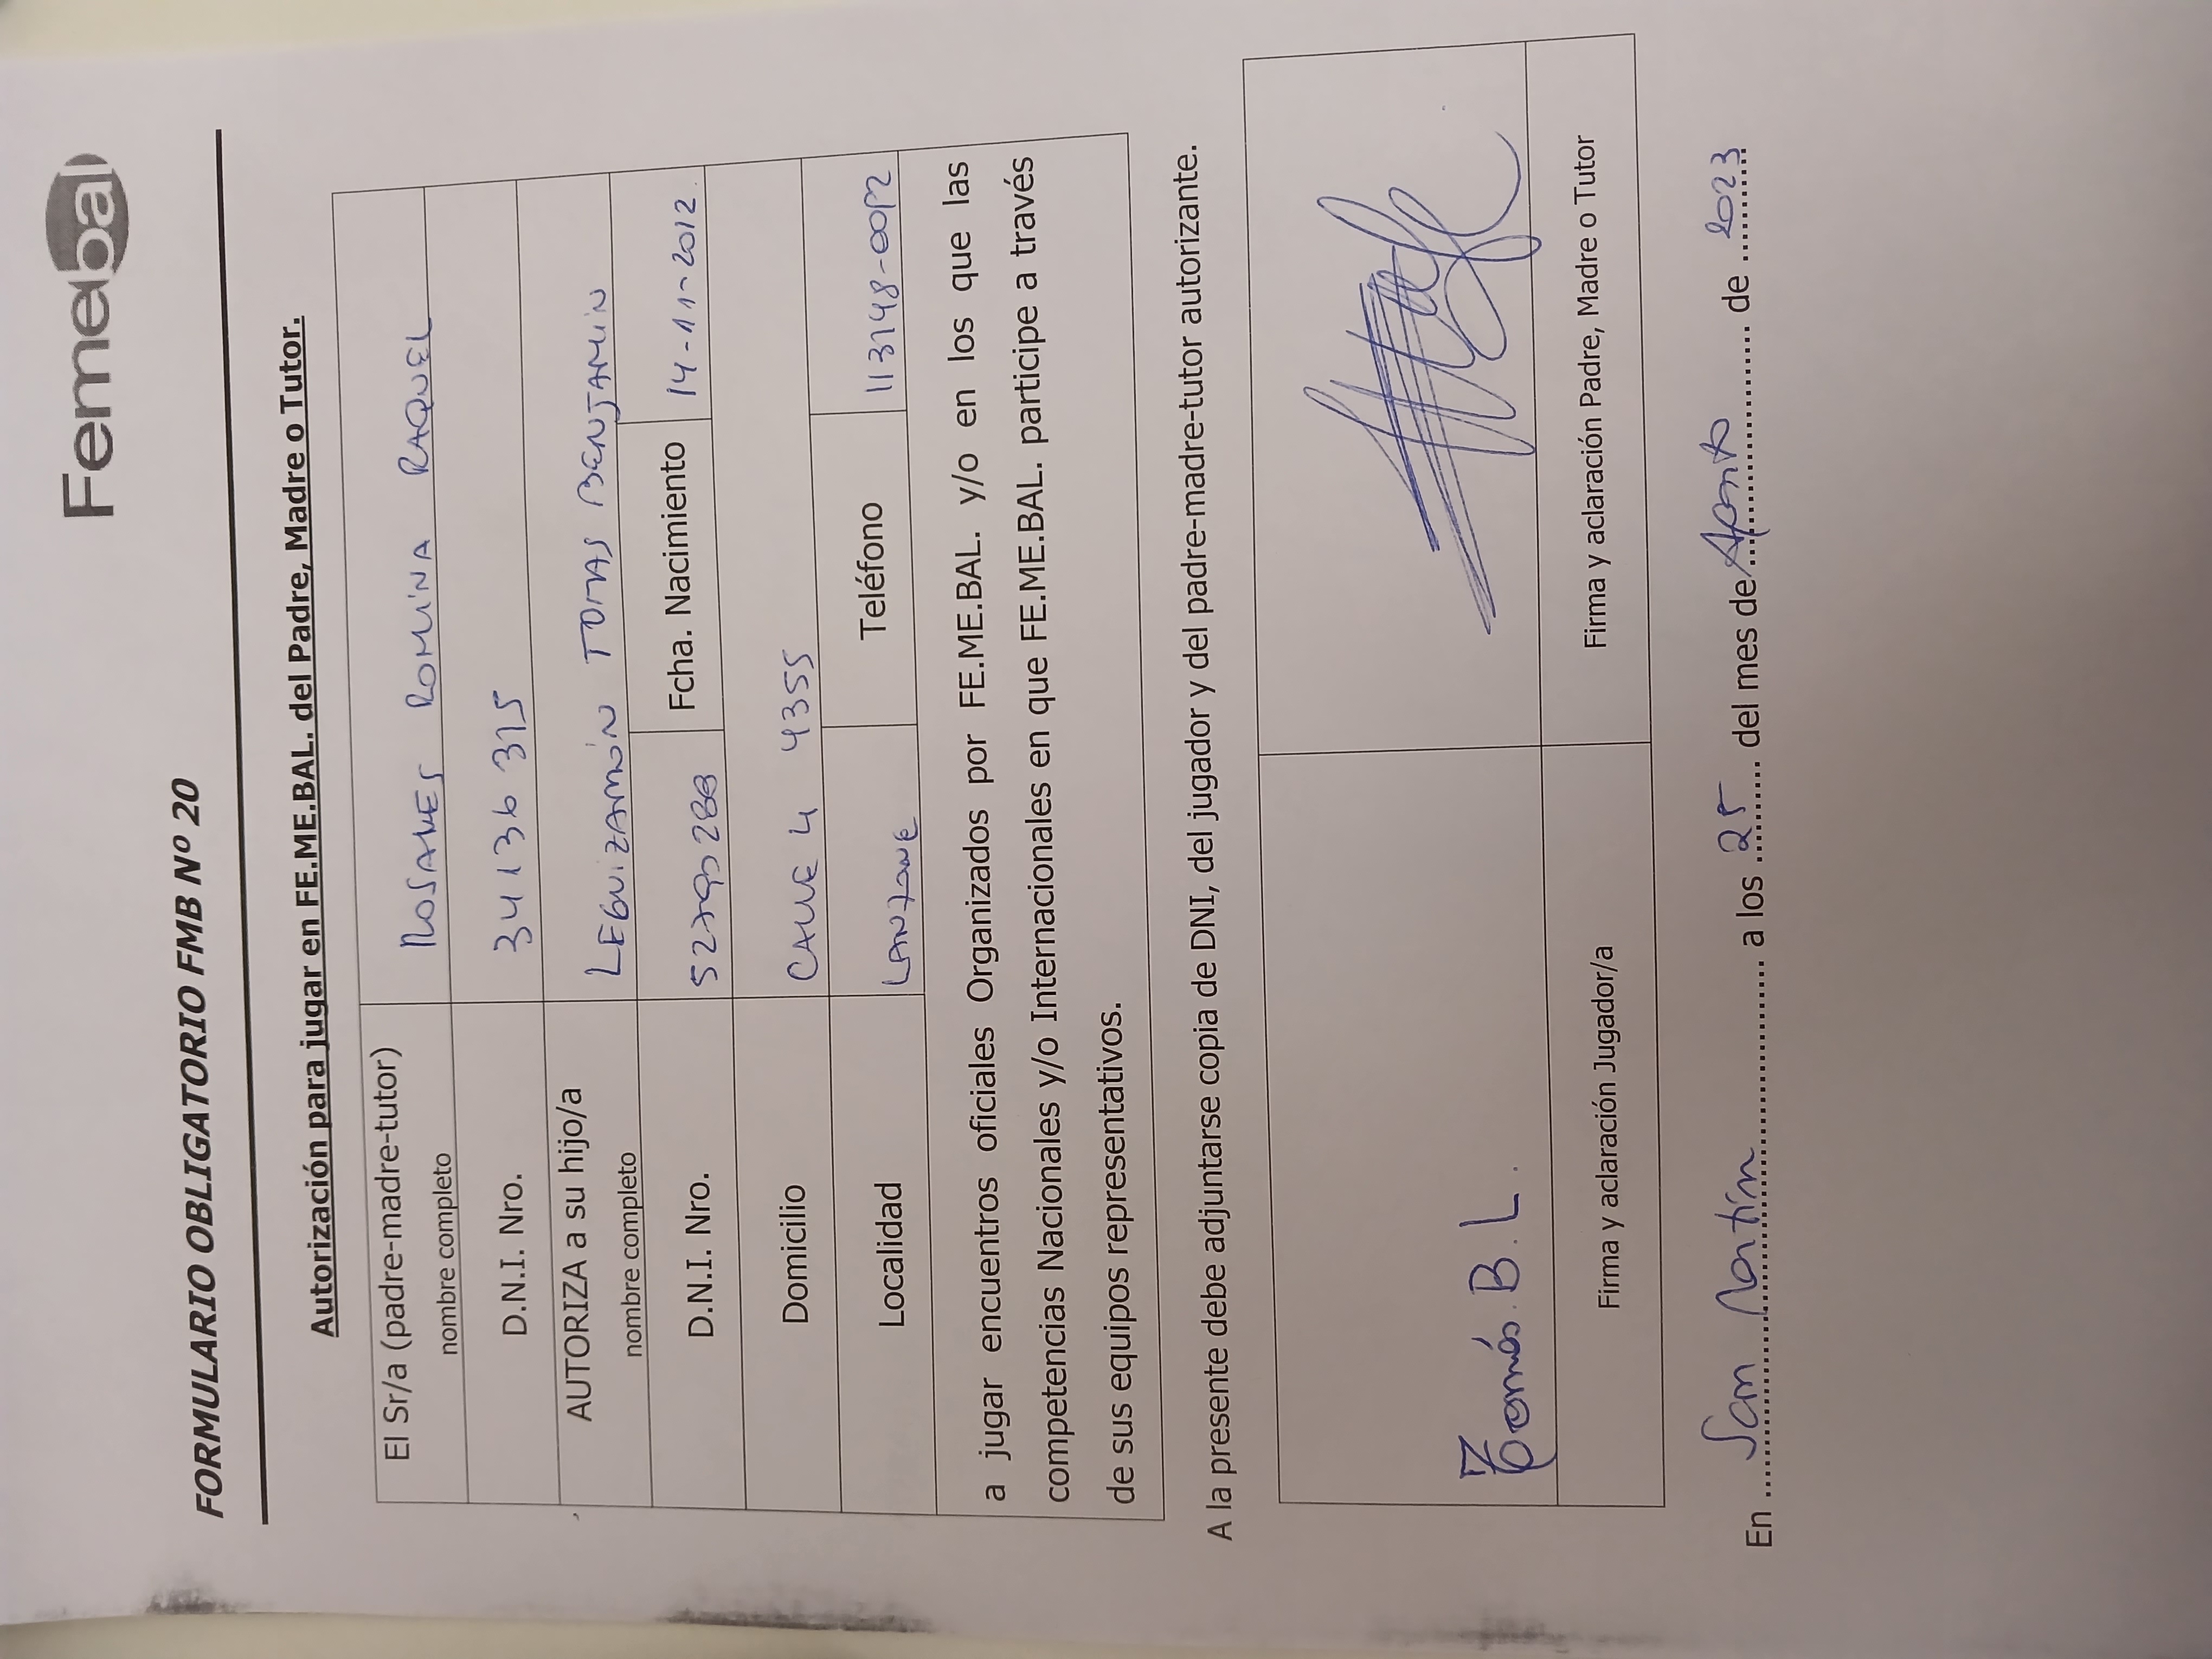 Femebal
FORMULARIO OBLIGATORIO FMB Nº 20
Autorización para jugar en FE.ME.BAL. del Padre, Madre o Tutor.
El Sr/a (padre-madre-tutor)
nombre completo
ROMINA RAQUEL
D.N.I. Nro.
34 136 315
AUTORIZA a su hijo/a
nombre completo
LEGUIZAMÓN TOMAS BENJAMIN
D.N.I. Nro.
Fcha. Nacimiento
14-11-2012
Domicilio
CALLE 4 4355
Localidad
Teléfono
a jugar encuentros oficiales Organizados por FE.ME.BAL. y/o en los que las
competencias Nacionales y/o Internacionales en que FE.ME.BAL. participe a través
de sus equipos representativos.
A la presente debe adjuntarse copia de DNI, del jugador y del padre-madre-tutor autorizante.
Tomás.B.L.
Firma y aclaración Jugador/a
Firma y aclaración Padre, Madre o Tutor
En San Martín a los 25 del mes de Agosto de 2023